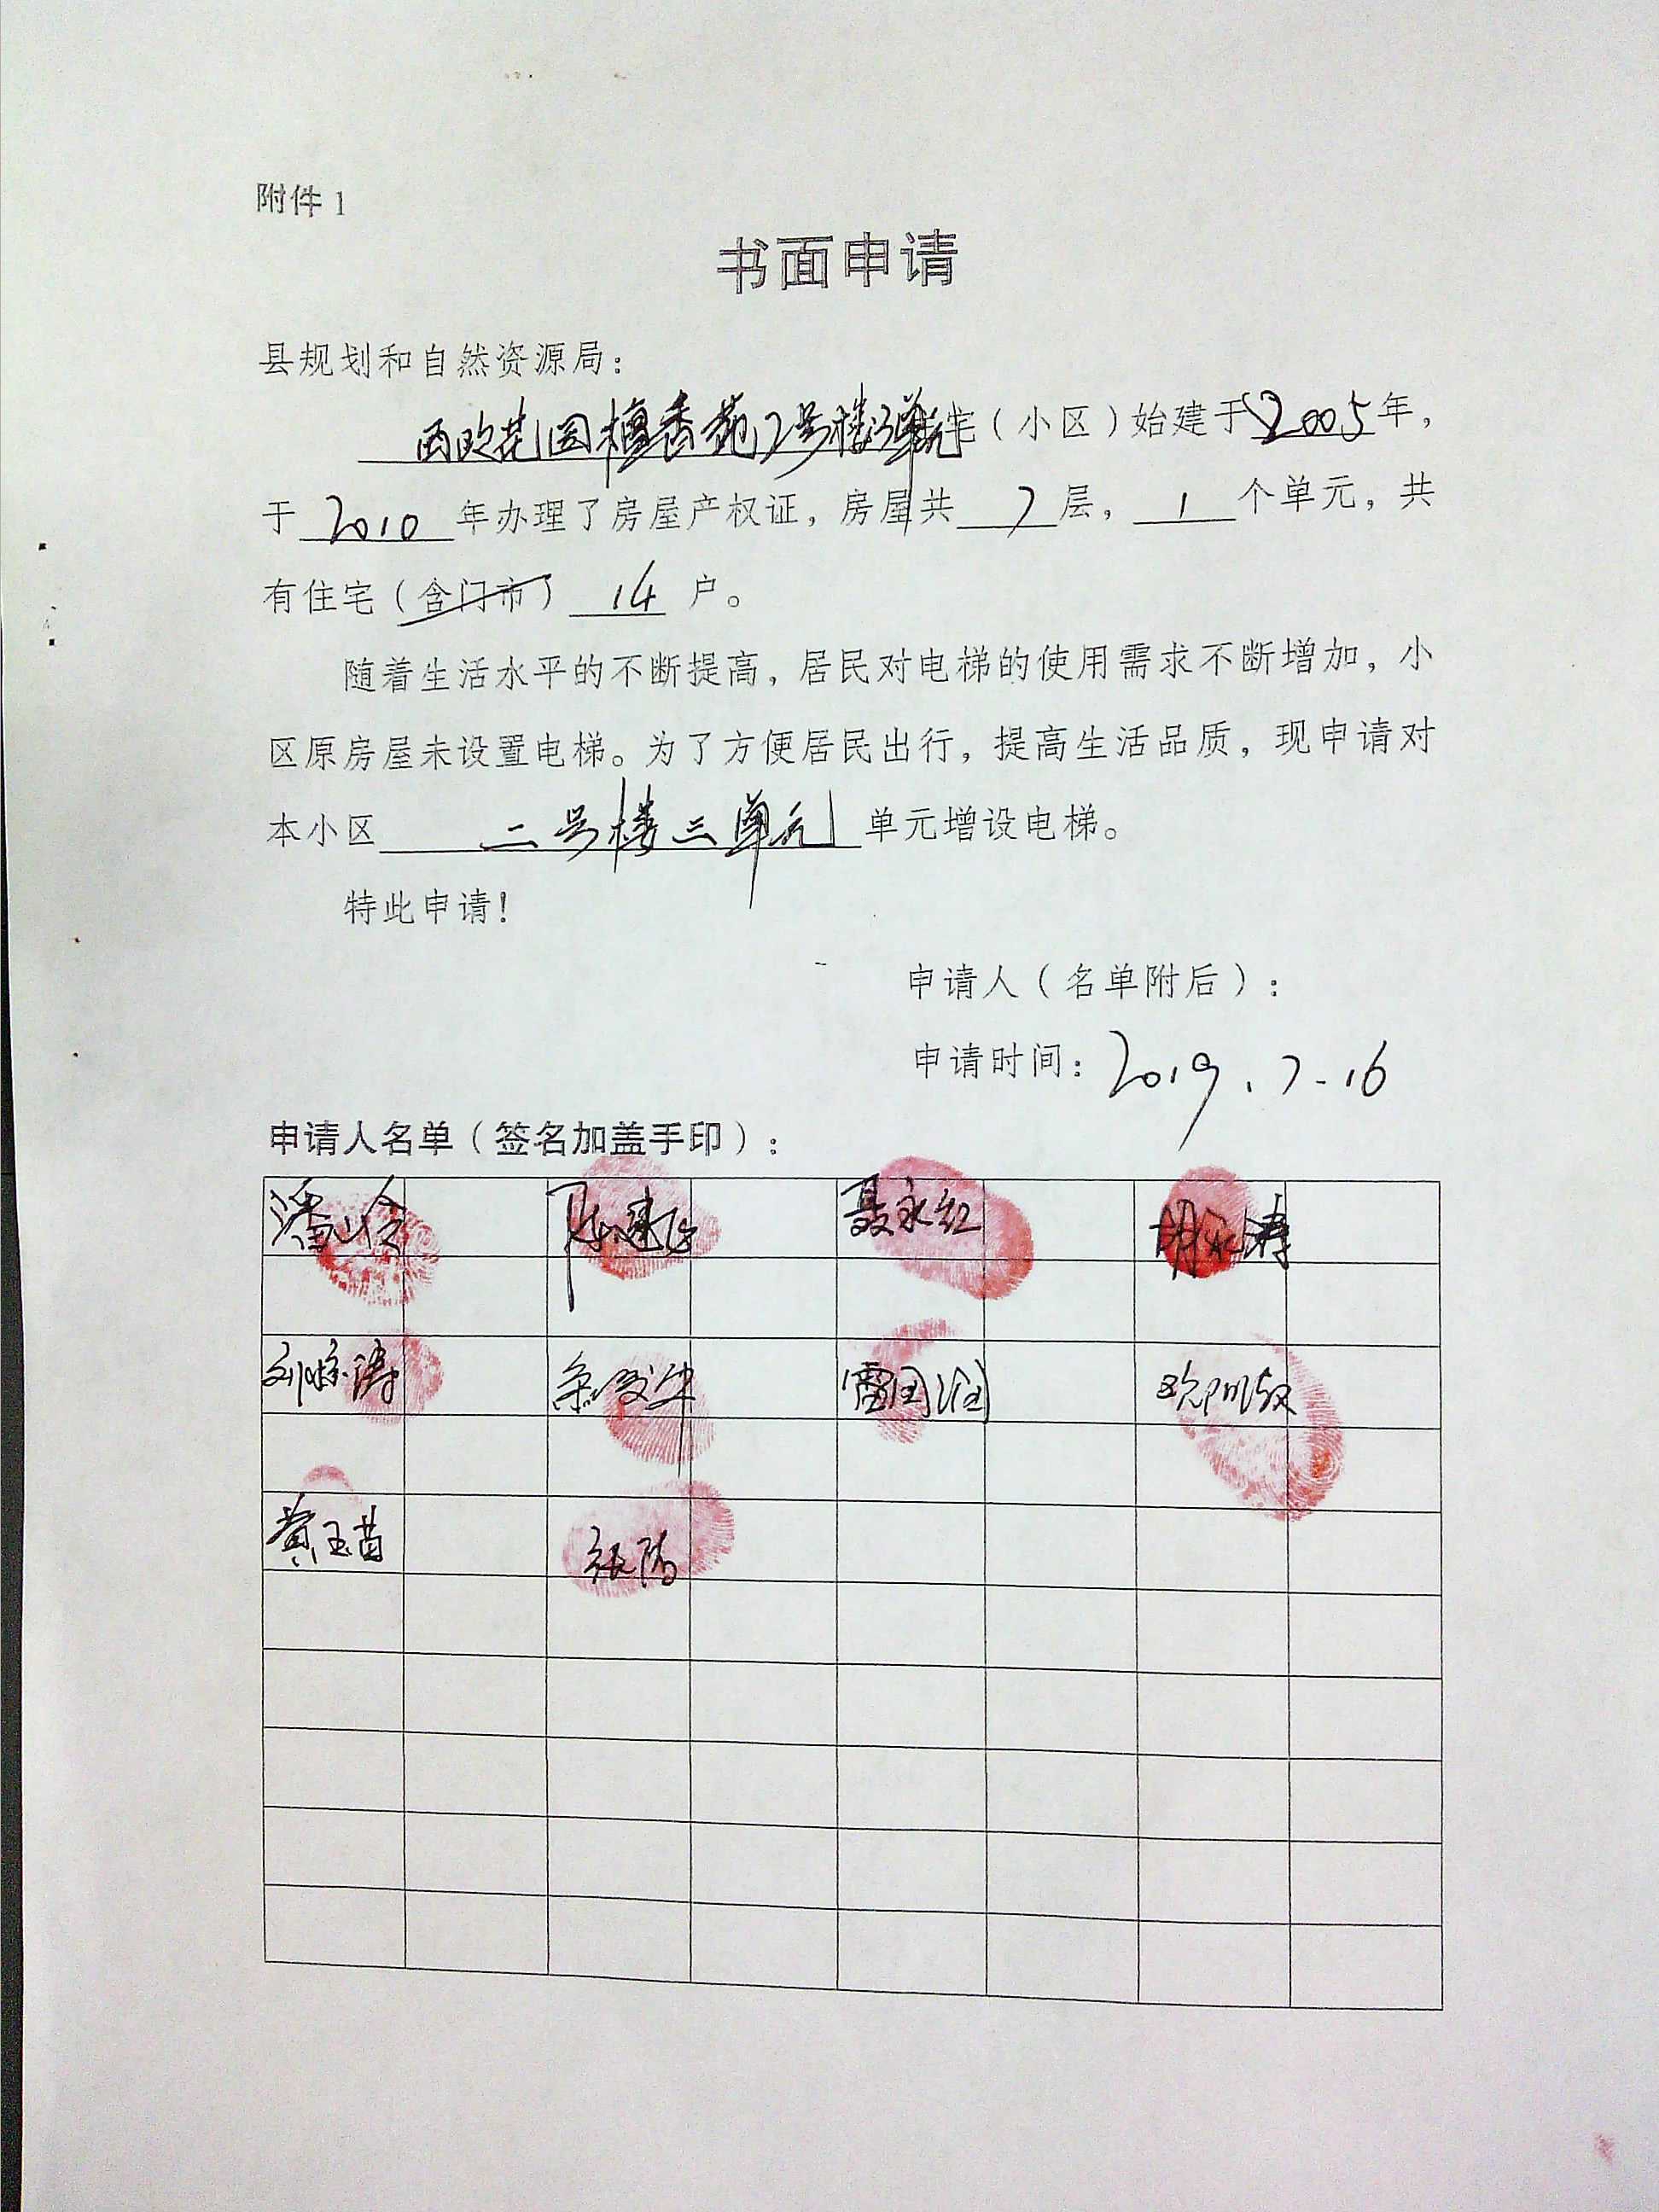 附件1
书面申请
县规划和自然资源局：
西欧花园檀香苑2号楼3单元住宅（小区）始建于2005年，
于2010年办理了房屋产权证，房屋共7层，1个单元，共
有住宅（含门市）14户。
随着生活水平的不断提高，居民对电梯的使用需求不断增加，小
区原房屋未设置电梯。为了方便居民出行，提高生活品质，现申请对
本小区二号楼三单元单元增设电梯。
特此申请！
申请人（名单附后）：
申请时间：2019.7-16
申请人名单（签名加盖手印）：
聂永红 胡永涛